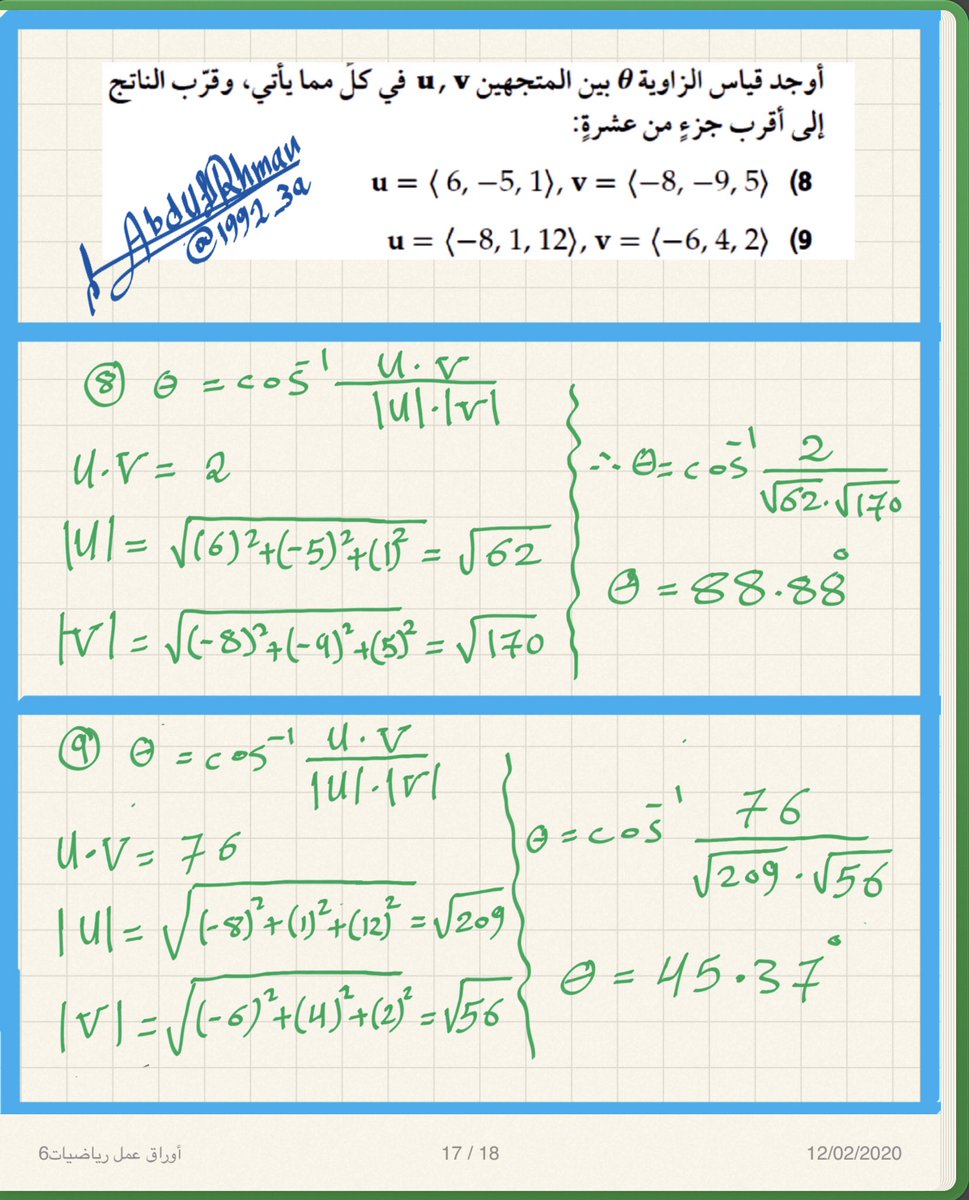 أوجد قياس الزاوية θ بين المتجهين u, v في كلّ مما يأتي، وقرّب الناتج
إلى أقرب جزءٍ من عشرةٍ:
8) u = ⟨ 6, −5, 1⟩, v = ⟨−8, −9, 5⟩
9) u = ⟨−8, 1, 12⟩, v = ⟨−6, 4, 2⟩
AbdulRhman
@1992_3a
⑧ θ = cos⁻¹ u·v / |u|·|v|
u·v = 2
|u| = √(6)²+(-5)²+(1)² = √62
|v| = √(-8)²+(-9)²+(5)² = √170
∴ θ = cos⁻¹ 2 / √62·√170
θ = 88.88°
⑨ θ = cos⁻¹ u·v / |u|·|v|
u·v = 76
|u| = √(-8)²+(1)²+(12)² = √209
|v| = √(-6)²+(4)²+(2)² = √56
θ = cos⁻¹ 76 / √209·√56
θ = 45.37°
أوراق عمل رياضيات6
17 / 18
12/02/2020